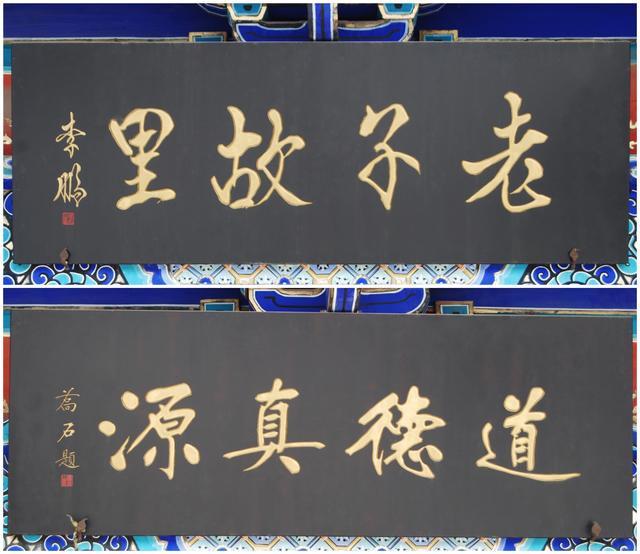 老子故里
李鹏
道德真源
乔石题